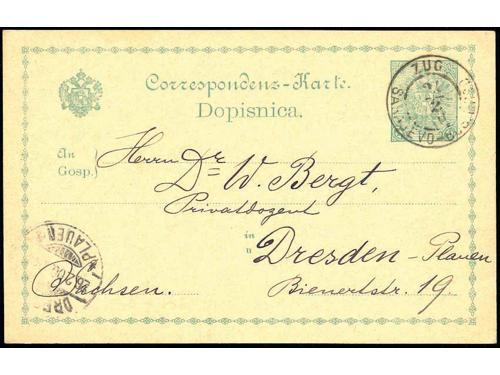 Correspondenz-Karte.
Dopisnica.
ZUG
SARAJEVO
An
Gosp.)
Herrn Dr W. Bergt,
Privatdozent
in
u
Dresden-Plauen
Sachsen.
Bienertstr. 19.
PLAUEN
DRE